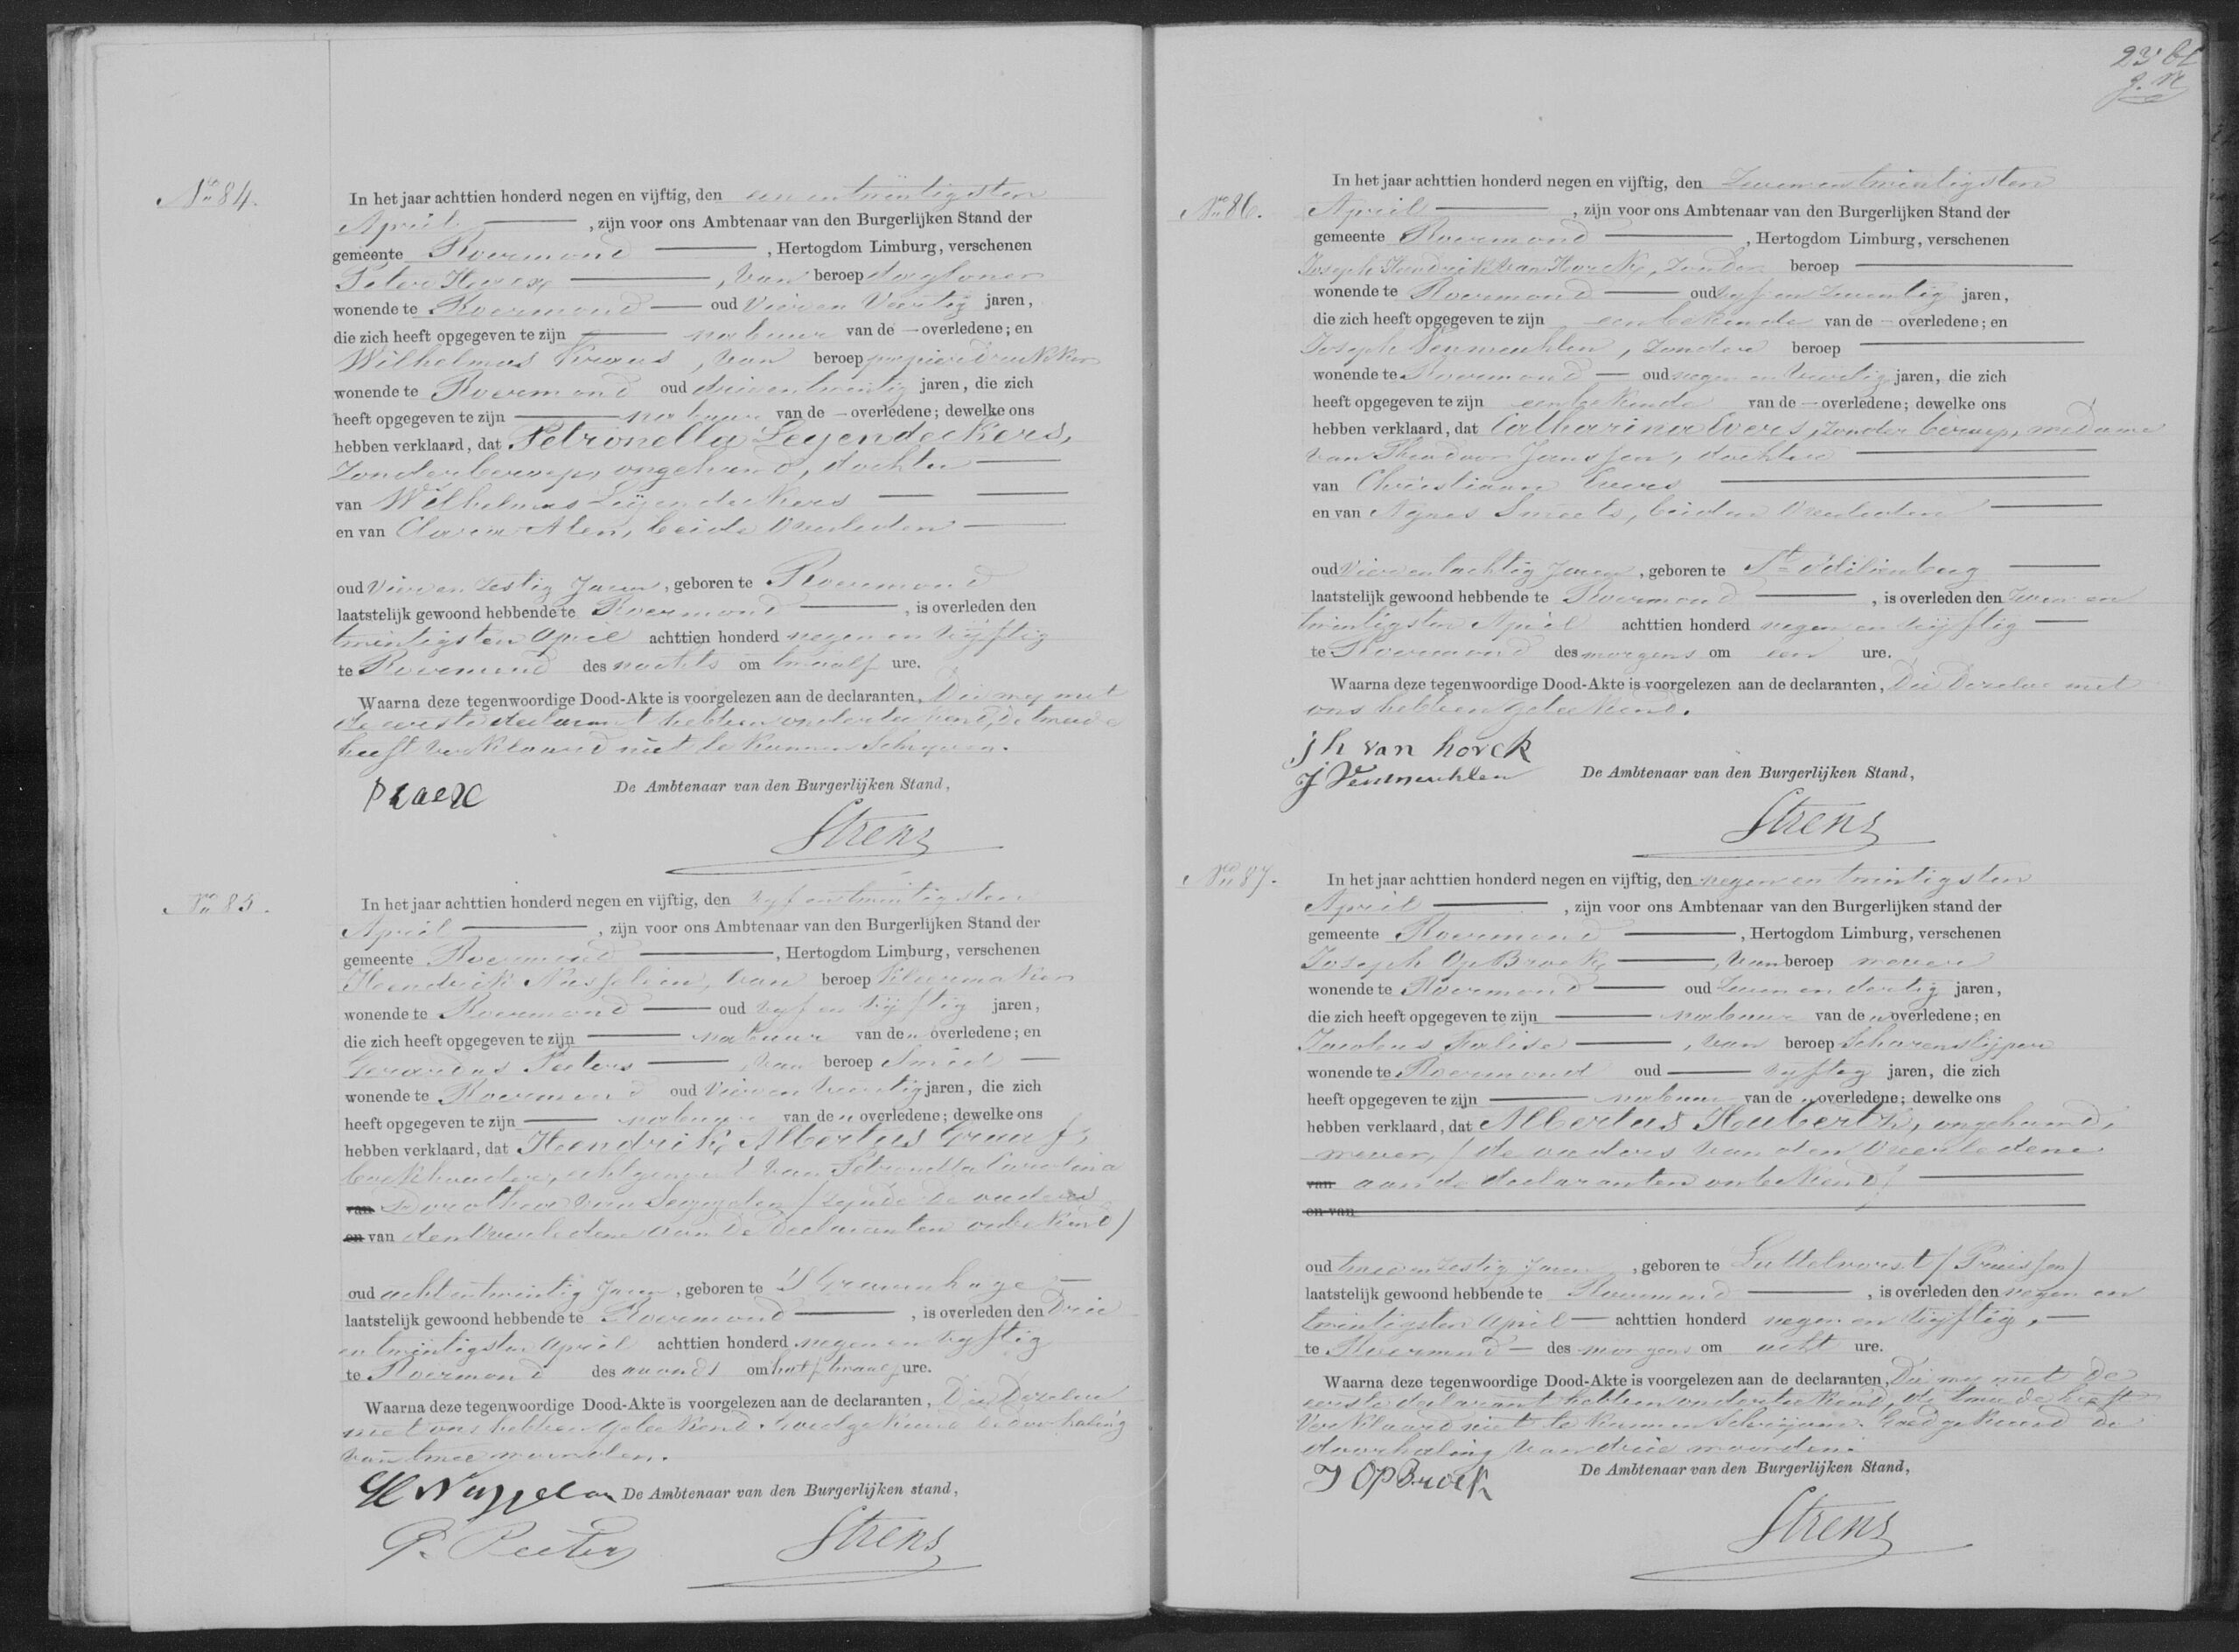 No 84.
In het jaar achttien honderd negen en vijftig, den een en twintigsten
April , zijn voor ons Ambtenaar van den Burgerlijken Stand der
gemeente Roermond , Hertogdom Limburg, verschenen
Peter , van beroep daglooner
wonende te Roermond oud Vier en Veertig jaren,
die zich heeft opgegeven te zijn nabuur van de overledene; en
Wilhelmus Kraus, van beroep papierdrukker
wonende te Roermond oud drie en twintig jaren, die zich
heeft opgegeven te zijn nabuur van de overledene; dewelke ons
hebben verklaard, dat Petronella Leyendeckers,
Zonder beroep, ongehuwd, dochter
van Wilhelmus Leijendeckers
en van Clara Aten, beide overleden
oud Vier en Zestig Jaren, geboren te Roermond
laatstelijk gewoond hebbende te Roermond , is overleden den
twintigsten April achttien honderd negen en vijftig
te Roermond des nachts om twaalf ure.
Waarna deze tegenwoordige Dood-Akte is voorgelezen aan de declaranten, Die my met
de eerste declarant hebben onderteekend, de tweede
heeft verklaard niet te kunnen Schryven.
De Ambtenaar van den Burgerlijken Stand,
Strens
No 85.
In het jaar achttien honderd negen en vijftig, den vyf en twintigsten
April , zijn voor ons Ambtenaar van den Burgerlijken Stand der
gemeente Roermond , Hertogdom Limburg, verschenen
Hendrik Nusselein, van beroep kleermaker
wonende te Roermond oud vyf en vijftig jaren,
die zich heeft opgegeven te zijn nabuur van den overledene; en
Gerardus Peeters van beroep Smid
wonende te Roermond oud Vier en Veertig jaren, die zich
heeft opgegeven te zijn nabuur van den overledene; dewelke ons
hebben verklaard, dat Hendrik Albertus Graaf,
boekhouder, echtgenoot van Petronella Carolina
van Dorothea van / zynde de ouders
en van den overledene aan de declaranten onbekend /
oud acht en twintig Jaren, geboren te 'S Gravenhage
laatstelijk gewoond hebbende te Roermond , is overleden den Drie
en twintigsten April achttien honderd negen en vyftig
te Roermond des avonds om half twaalf ure.
Waarna deze tegenwoordige Dood-Akte is voorgelezen aan de declaranten, Die Dezelve
met ons hebben geteekend. Goedgekeurd de doorhaling
van twee woorden.
De Ambtenaar van den Burgerlijken stand,
G. Peeters
Strens
No 86.
In het jaar achttien honderd negen en vijftig, den Zeven en twintigsten
April , zijn voor ons Ambtenaar van den Burgerlijken Stand der
gemeente Roermond , Hertogdom Limburg, verschenen
Joseph Hendrik van Horck, Zonder beroep
wonende te Roermond oud vyf en Zeventig jaren,
die zich heeft opgegeven te zijn een bekende van de overledene; en
Joseph Venmeuhlen, Zonder beroep
wonende te Roermond oud negen en Veertig jaren, die zich
heeft opgegeven te zijn een bekende van de overledene; dewelke ons
hebben verklaard, dat Catharina Evers, zonder beroep, weduwe
van Theodoor Janssen, dochter
van Christiaan Evers
en van Agnes Smeets, beiden Overleden
oud Vier en tachtig Jaren, geboren te St Odilienberg
laatstelijk gewoond hebbende te Roermond , is overleden den Zeven en
twintigsten April achttien honderd negen en vijftig
te Roermond des morgens om een ure.
Waarna deze tegenwoordige Dood-Akte is voorgelezen aan de declaranten, Die Dezelve met
ons hebben geteekend.
j h van horck
J Venmeuhlen De Ambtenaar van den Burgerlijken Stand,
Strens
No 87.
In het jaar achttien honderd negen en vijftig, den negen en twintigsten
April , zijn voor ons Ambtenaar van den Burgerlijken stand der
gemeente Roermond , Hertogdom Limburg, verschenen
Joseph Op Broek, van beroep wever
wonende te Roermond oud Zeven en dertig jaren,
die zich heeft opgegeven te zijn nabuur van den overledene; en
Jacobus Falise , van beroep Scharenslijper
wonende te Roermond oud vyftig jaren, die zich
heeft opgegeven te zijn nabuur van den overledene; dewelke ons
hebben verklaard, dat Albertus Houberth, ongehuwd,
wever, / de ouders van den overledene
van aan de declaranten onbekend /
en van
oud twee en Zestig Jaren, geboren te Luttelvorst / Pruissen /
laatstelijk gewoond hebbende te Roermond , is overleden den negen en
twintigsten April achttien honderd negen en vijftig,
te Roermond des morgens om acht ure.
Waarna deze tegenwoordige Dood-Akte is voorgelezen aan de declaranten, Die my met de
eerste declarant hebben onderteekend, de tweede heeft
Verklaard niet te kunnen schrijven. Goedgekeurd de
doorhaling van drie woorden.
J OpBroek De Ambtenaar van den Burgerlijken Stand,
Strens